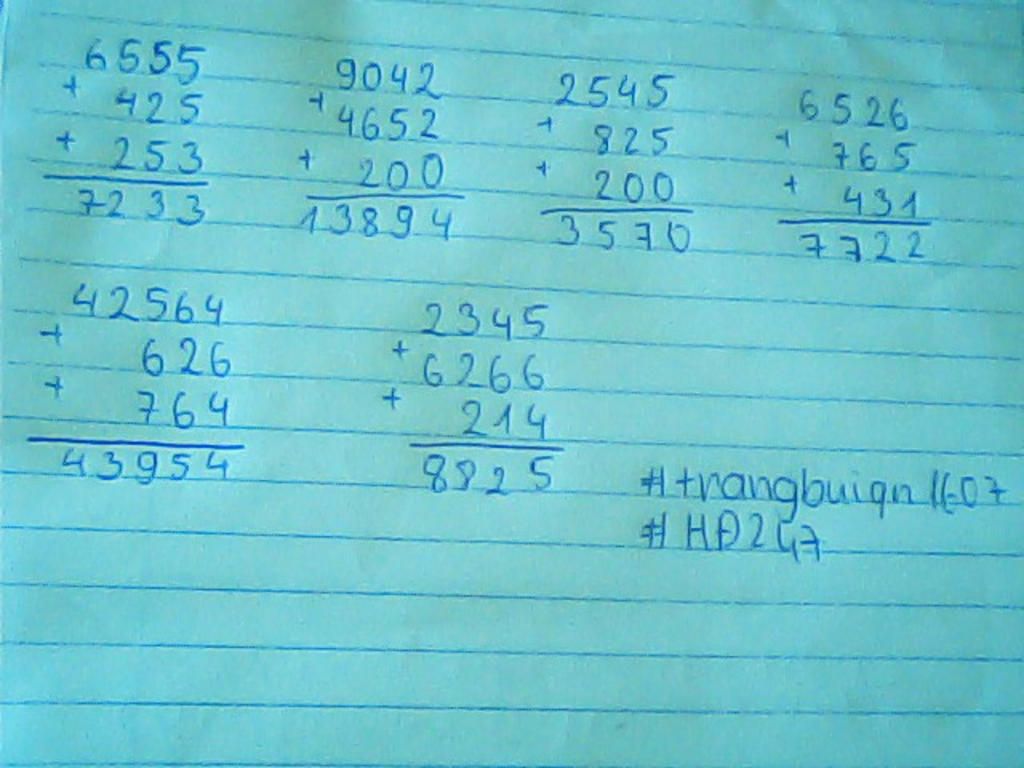 6555
+ 425
+ 253
7233
9042
+ 4652
+ 200
13894
2545
+ 825
+ 200
3570
6526
+ 765
+ 431
7722
42564
+ 626
+ 764
43954
2345
+ 6266
+ 214
8825
#trangbuiqn1607
#HĐ247